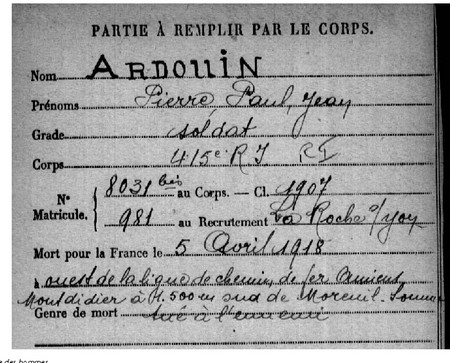 PARTIE À REMPLIR PAR LE CORPS.
Nom ARDOUIN
Prénoms Pierre, Paul, Jean
Grade soldat
Corps 415e R I RI
Nº Matricule. { 8031 bis au Corps. — Cl. 1907
981 au Recrutement La Roche s/yon
Mort pour la France le 5 Avril 1918
à ouest de la ligne de chemin de fer Amiens
Montdidier à H. 500 m sud de Moreuil - Somme
Genre de mort tué à l'ennemi
des hommes